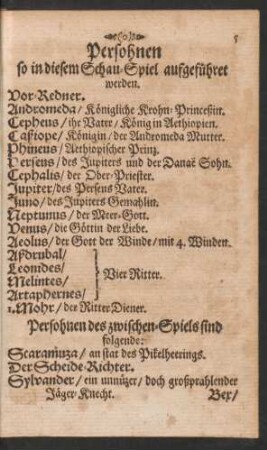 (o) 5
Persohnen
so in diesem Schau-Spiel aufgeführet
werden.
Vor-Redner.
Andromeda/ Königliche Krohn-Princeßin.
Cepheus/ ihr Vater/ König in Aethiopien.
Caßiope/ Königin/ der Andromeda Mutter.
Phineus/ Aethiopischer Prinz.
Perseus/ des Jupiters und der Danaë Sohn.
Cephalis/ der Ober-Priester.
Jupiter/ des Perseus Vater.
Juno/ des Jupiters Gemahlin.
Neptunus/ der Meer-Gott.
Venus/ die Göttin der Liebe.
Aeolus/ der Gott der Winde/ mit 4. Winden.
Asdrubal/
Leonides/
Melintes/ Vier Ritter.
Artaphernes/
1. Mohr/ der Ritter Diener.
Persohnen des zwischen-Spiels sind
folgende:
Scaramuza/ an stat des Pikelheerings.
Der Scheide-Richter.
Sylvander/ ein unnüzer/ doch großprahlender
Jäger-Knecht. Bex/